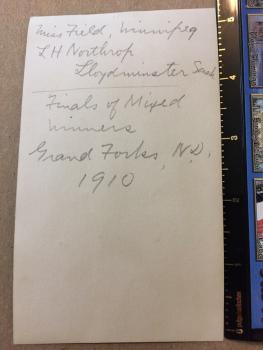 Miss Field, Winnipeg
L H Northrop
Lloydminster Sask
Finals of Mixed
Winners
Grand Forks, N.D.
1910